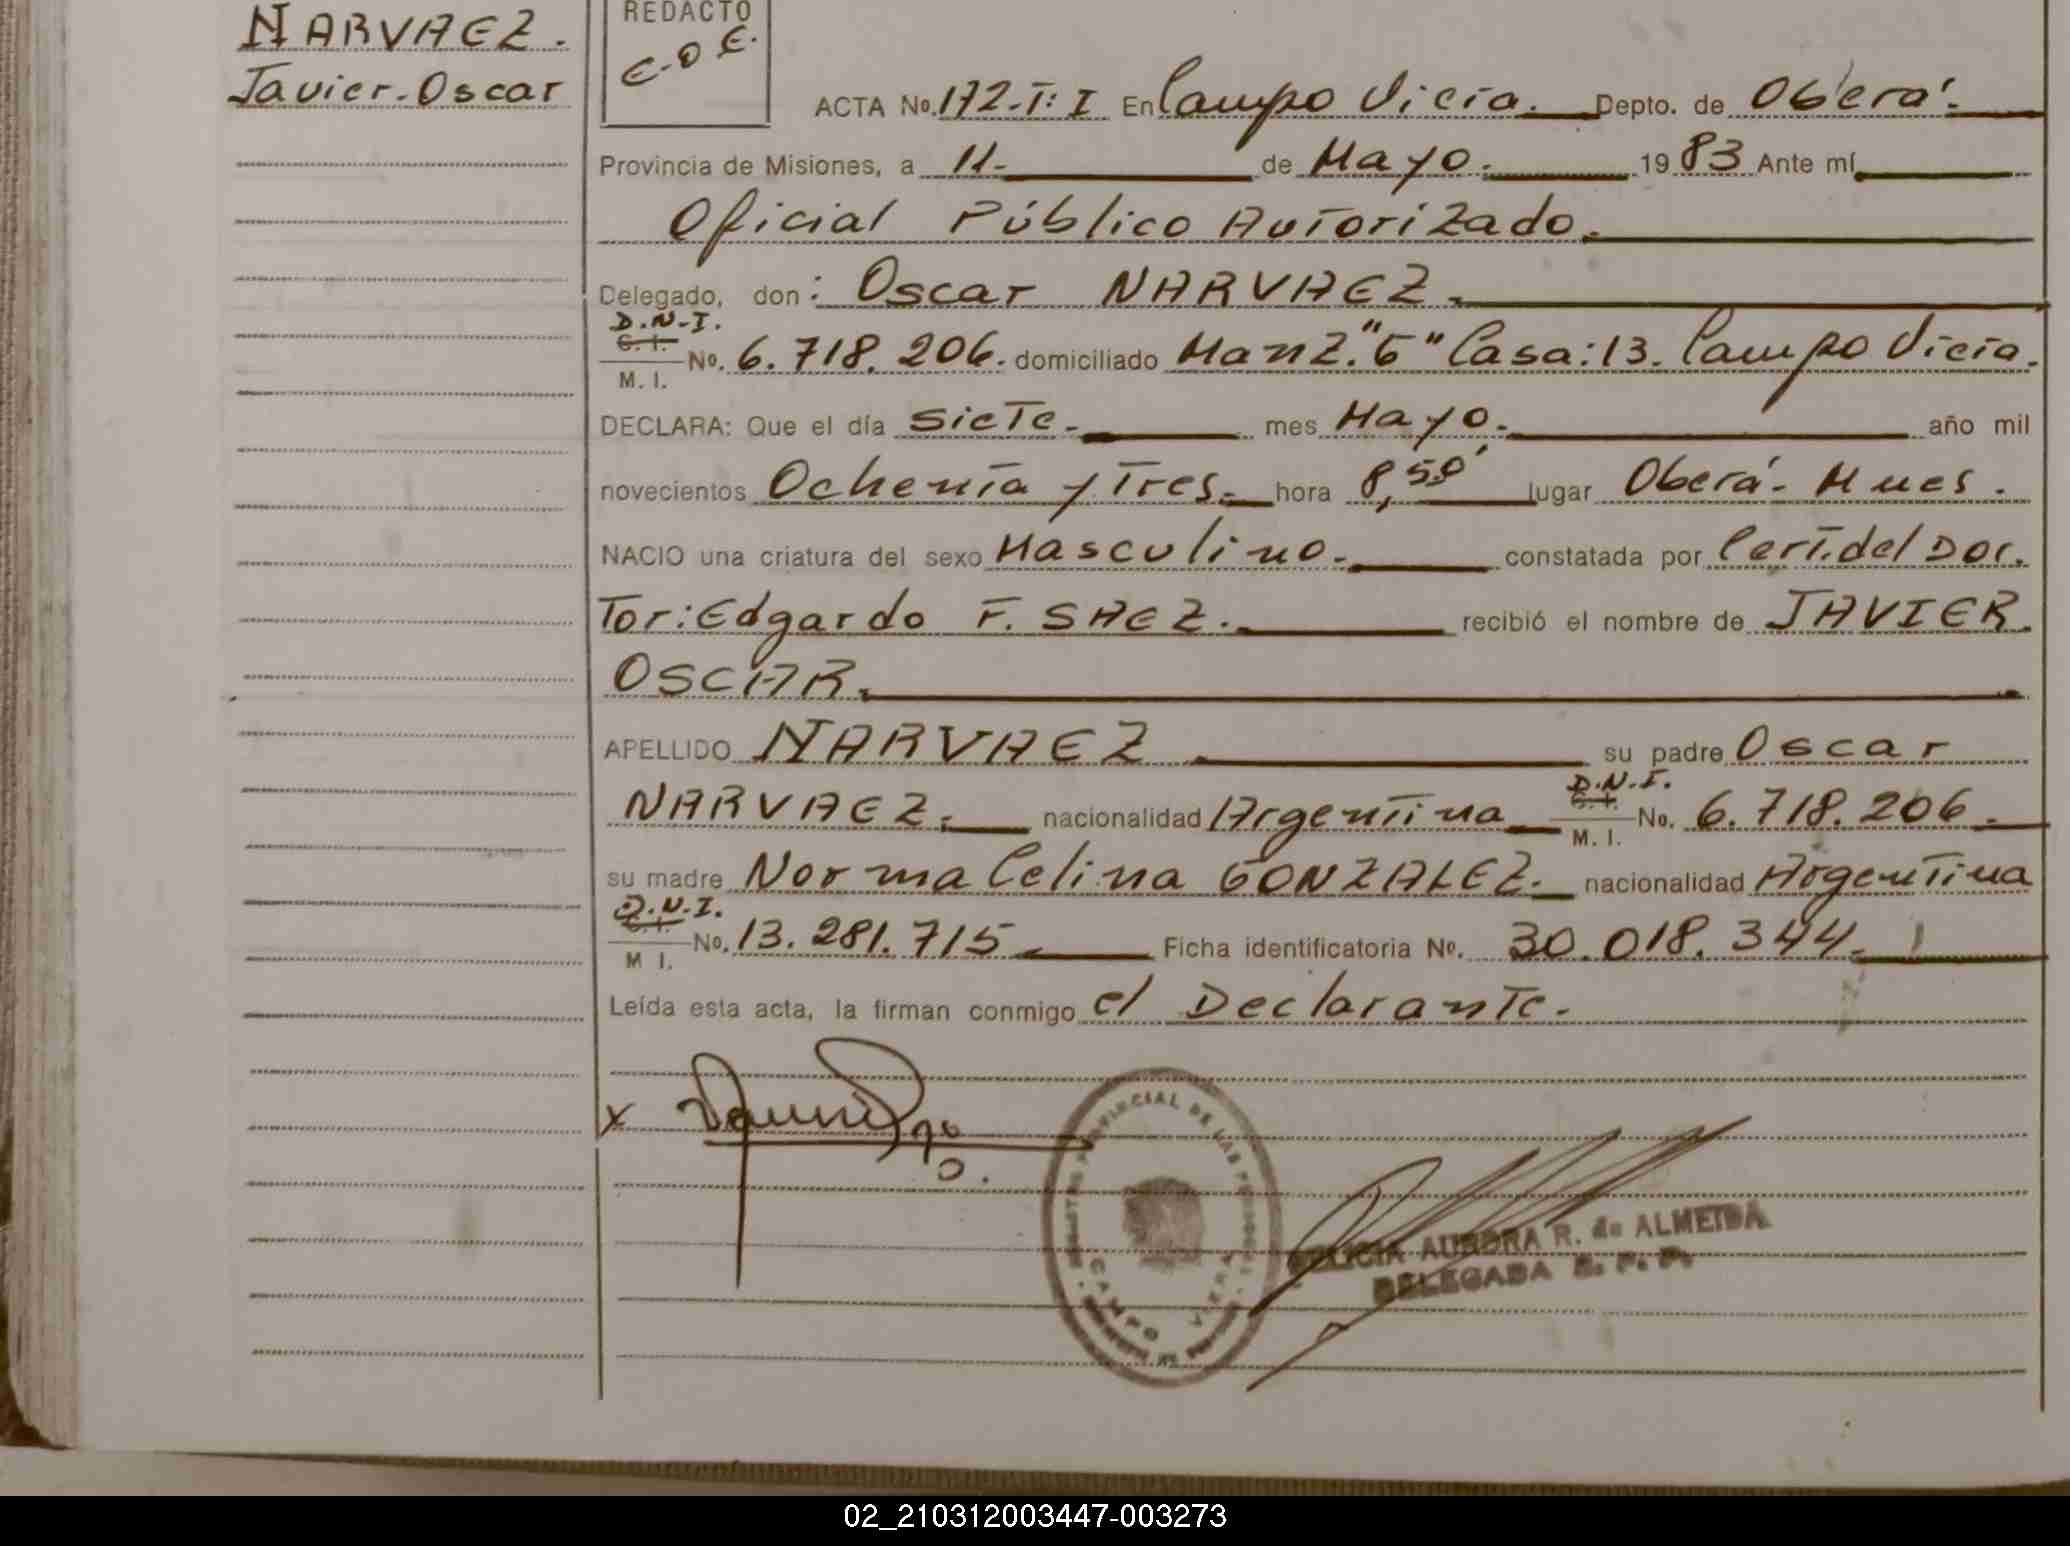 NARVAEZ.
Javier-Oscar
REDACTO
E.O.E.
ACTA No. 172-T: I En Campo Viera. Depto. de Oberá.
Provincia de Misiones, a 11- de Mayo. 1983 Ante mí
Oficial Público Autorizado.
Delegado, don: Oscar NARVAEZ.
D.N.I.
C. I.
M. I.
No. 6.718.206. domiciliado Manz. "G" Casa: 13. Campo Viera.
DECLARA: Que el día Siete. mes Mayo. año mil
novecientos Ochenta y Tres. hora 8,50' lugar Oberá- Mnes.
NACIO una criatura del sexo Masculino. constatada por Cert. del Doc.
Tor: Edgardo F. SAEZ. recibió el nombre de JAVIER.
OSCAR.
APELLIDO NARVAEZ su padre Oscar
D.N.I.
C. I.
M. I.
NARVAEZ. nacionalidad Argentina No. 6.718.206.
su madre Norma Celina GONZALEZ. nacionalidad Argentina
D.N.I.
C. I.
M I.
No. 13.281.715 Ficha identificatoria No. 30.018.344.
Leída esta acta, la firman conmigo el Declarante.
x
PROVINCIAL DE LAS PERSONAS
CAMPO VIERA
FELICIA AURORA R. de ALMEIDA
DELEGADA R. P. P.
02_210312003447-003273